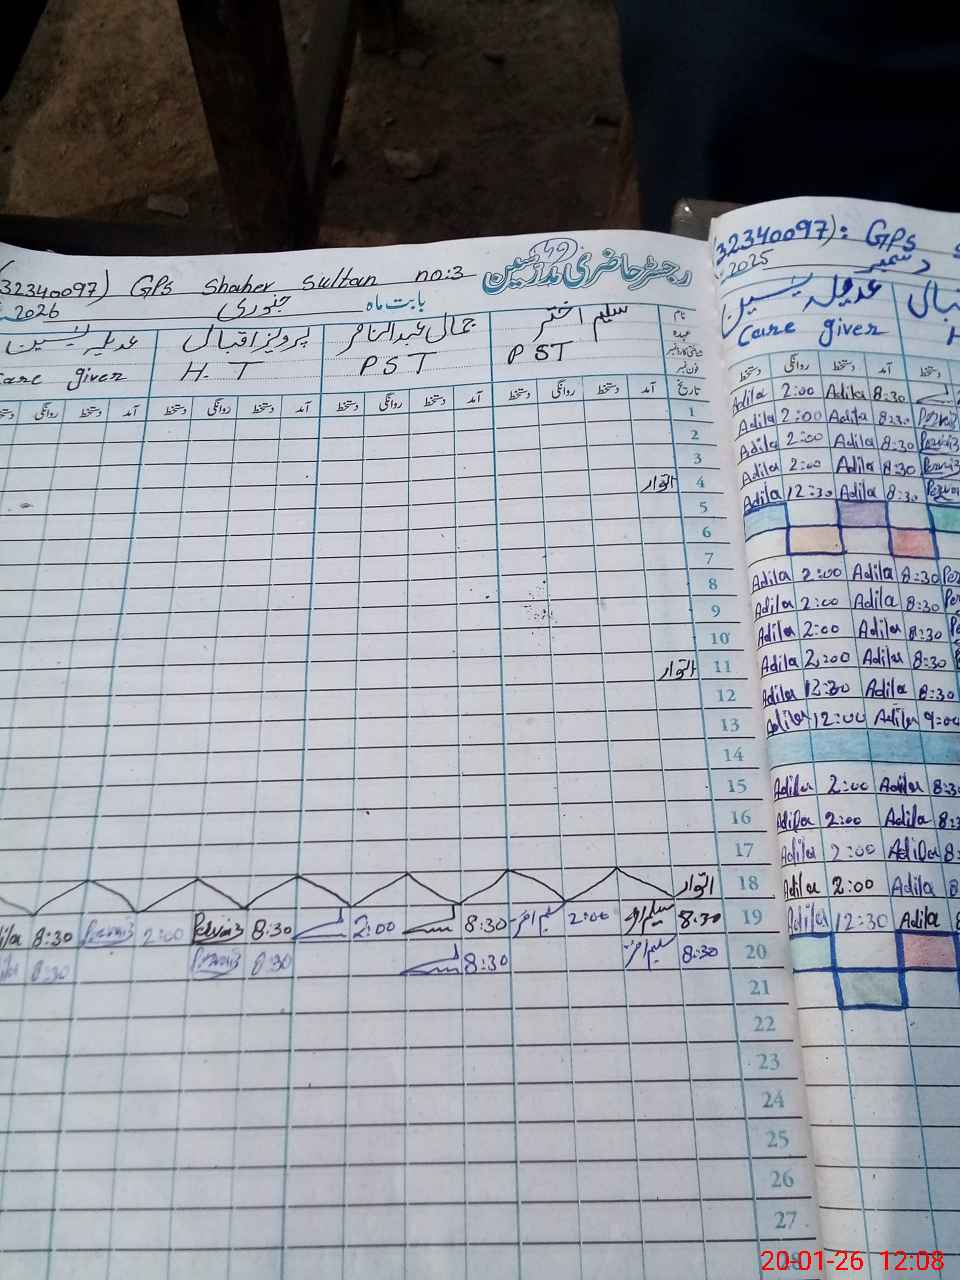 رجسٹر حاضری مدرسین
(32340097) GPS Shaher Sultan no:3
2026 جنوری بابت ماہ
نام سلیم اختر جمال عبدالناصر پرویز اقبال عدیلہ یٰسین
عہدہ PST PST H.T Care giver
شناختی کارڈ نمبر
فون نمبر
تاریخ آمد دستخط روانگی دستخط آمد دستخط روانگی دستخط آمد دستخط روانگی دستخط آمد دستخط روانگی دستخط
1
2
3
4 اتوار
5
6
7
8
9
10
11 اتوار
12
13
14
15
16
17
18 اتوار
19 8:30 2:00 8:30 2:00 8:30 Pervaiz 2:00 Pervaiz 8:30
20 8:30 8:30 8:30 Pervaiz 8:30
21
22
23
24
25
26
27
28
(32340097): GPS
2025 دسمبر
عدیلہ یٰسین
Care giver
دستخط روانگی دستخط آمد دستخط
Adila 2:00 Adila 8:30
Adila 2:00 Adila 8:30 Pervaiz
Adila 2:00 Adila 8:30 Pervaiz
Adila 2:00 Adila 8:30 Pervaiz
Adila 12:30 Adila 8:30 Pervaiz
Adila 2:00 Adila 8:30
Adila 2:00 Adila 8:30
Adila 2:00 Adila 8:30
Adila 2:00 Adila 8:30
Adila 12:30 Adila 8:30
Adila 12:00 Adila 9:00
Adila 2:00 Adila 8:3
Adila 2:00 Adila 8:3
Adila 2:00 Adila 8:
Adila 2:00 Adila 8
Adila 12:30 Adila 8
20-01-26 12:08